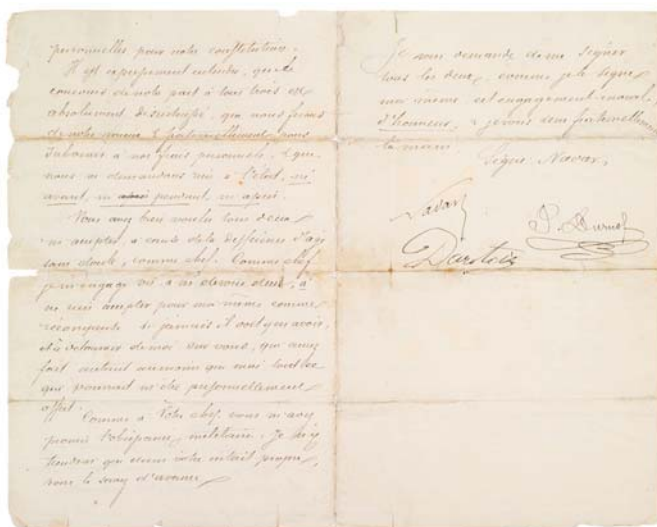 personnelles pour notre constitution.
Il est expressément entendu, que le
concours de notre part à tous trois est
absolument désintéressé, que nous ferons
de notre mieux & fraternellement, nous
à nos frais personnels, & que
nous ne demandons rien à l'etat, ni
avant, ni pendant, ni après.
Vous avez bien voulu tous deux
m'accepter, à cause de la différence d'age
sans doute, comme chef. Comme chef
je m'engage vis à vis de vous deux, à
ne rien accepter pour moi même comme
récompense si jamais il doit y en avoir,
et à détourner de moi sur vous, qui aurez
fait autant au moins que moi tout ce
qui pourrait m'être personnellement
offert.
Comme à votre chef, vous m'avez
promis l'obéissance militaire. Je n'y
tiendrai que dans votre intérêt propre,
vous le savez d'avance
Je vous demande de me signer
tous les deux, comme je le signe
moi même cet engagement moral,
d'honneur, & je vous serre fraternellement
la main.
Signé Navar.
Navar
P. Durnof
Dartois